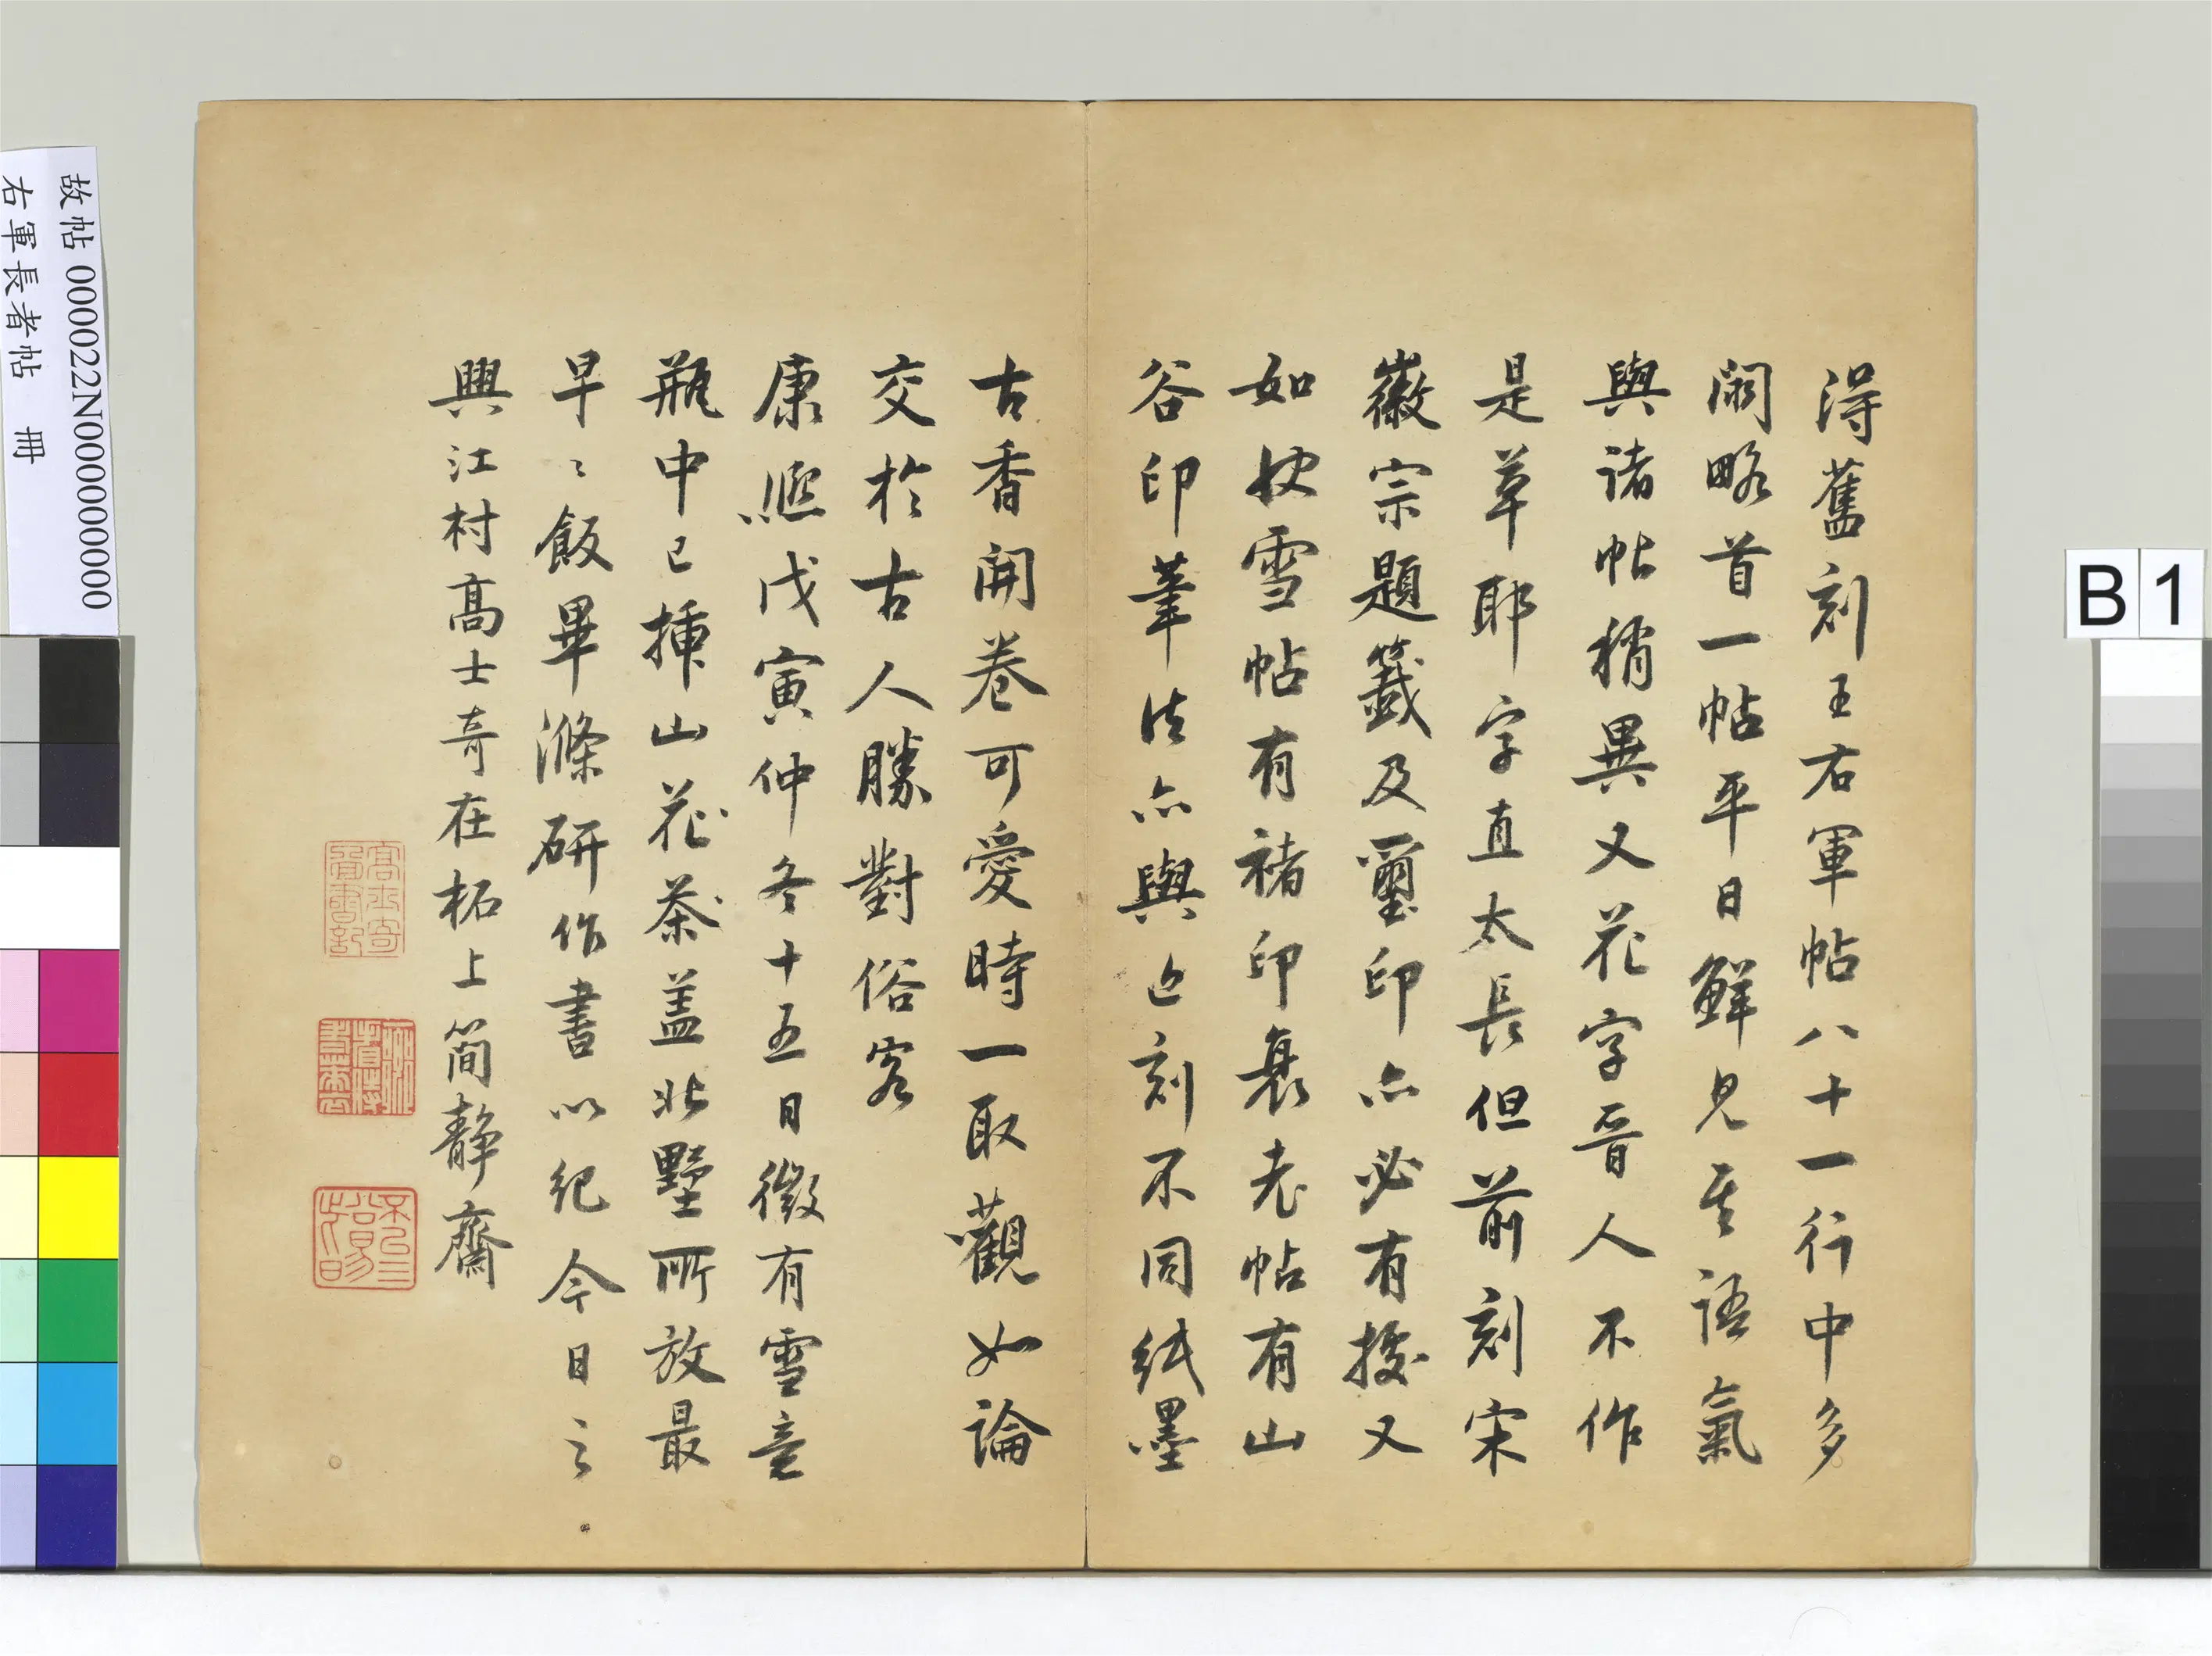 得舊刻王右軍帖八十一行中多
闕略首一帖平日鮮見其語氣
與諸帖稍異又花字晉人不作
是草耶字直太長但前刻宋
徽宗題籤及璽印亦必有據又
如快雪帖有褚印衰老帖有山
谷印筆法亦與近刻不同紙墨
古香開卷可愛時一取觀如論
交於古人勝對俗客
康熙戊寅仲冬十五日微有雪意
瓶中已揷山花茶盖北墅所放最
早〻飯畢滌研作書以紀今日之
興江村高士奇在柘上簡靜齋
高士奇
書記
故帖 000022N000000000
右軍長者帖 冊
B 1